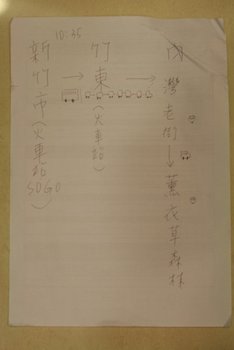 10:35
新竹市(火車站SOGO)
→
竹東(火車站)
→
內灣老街→薰衣草森林